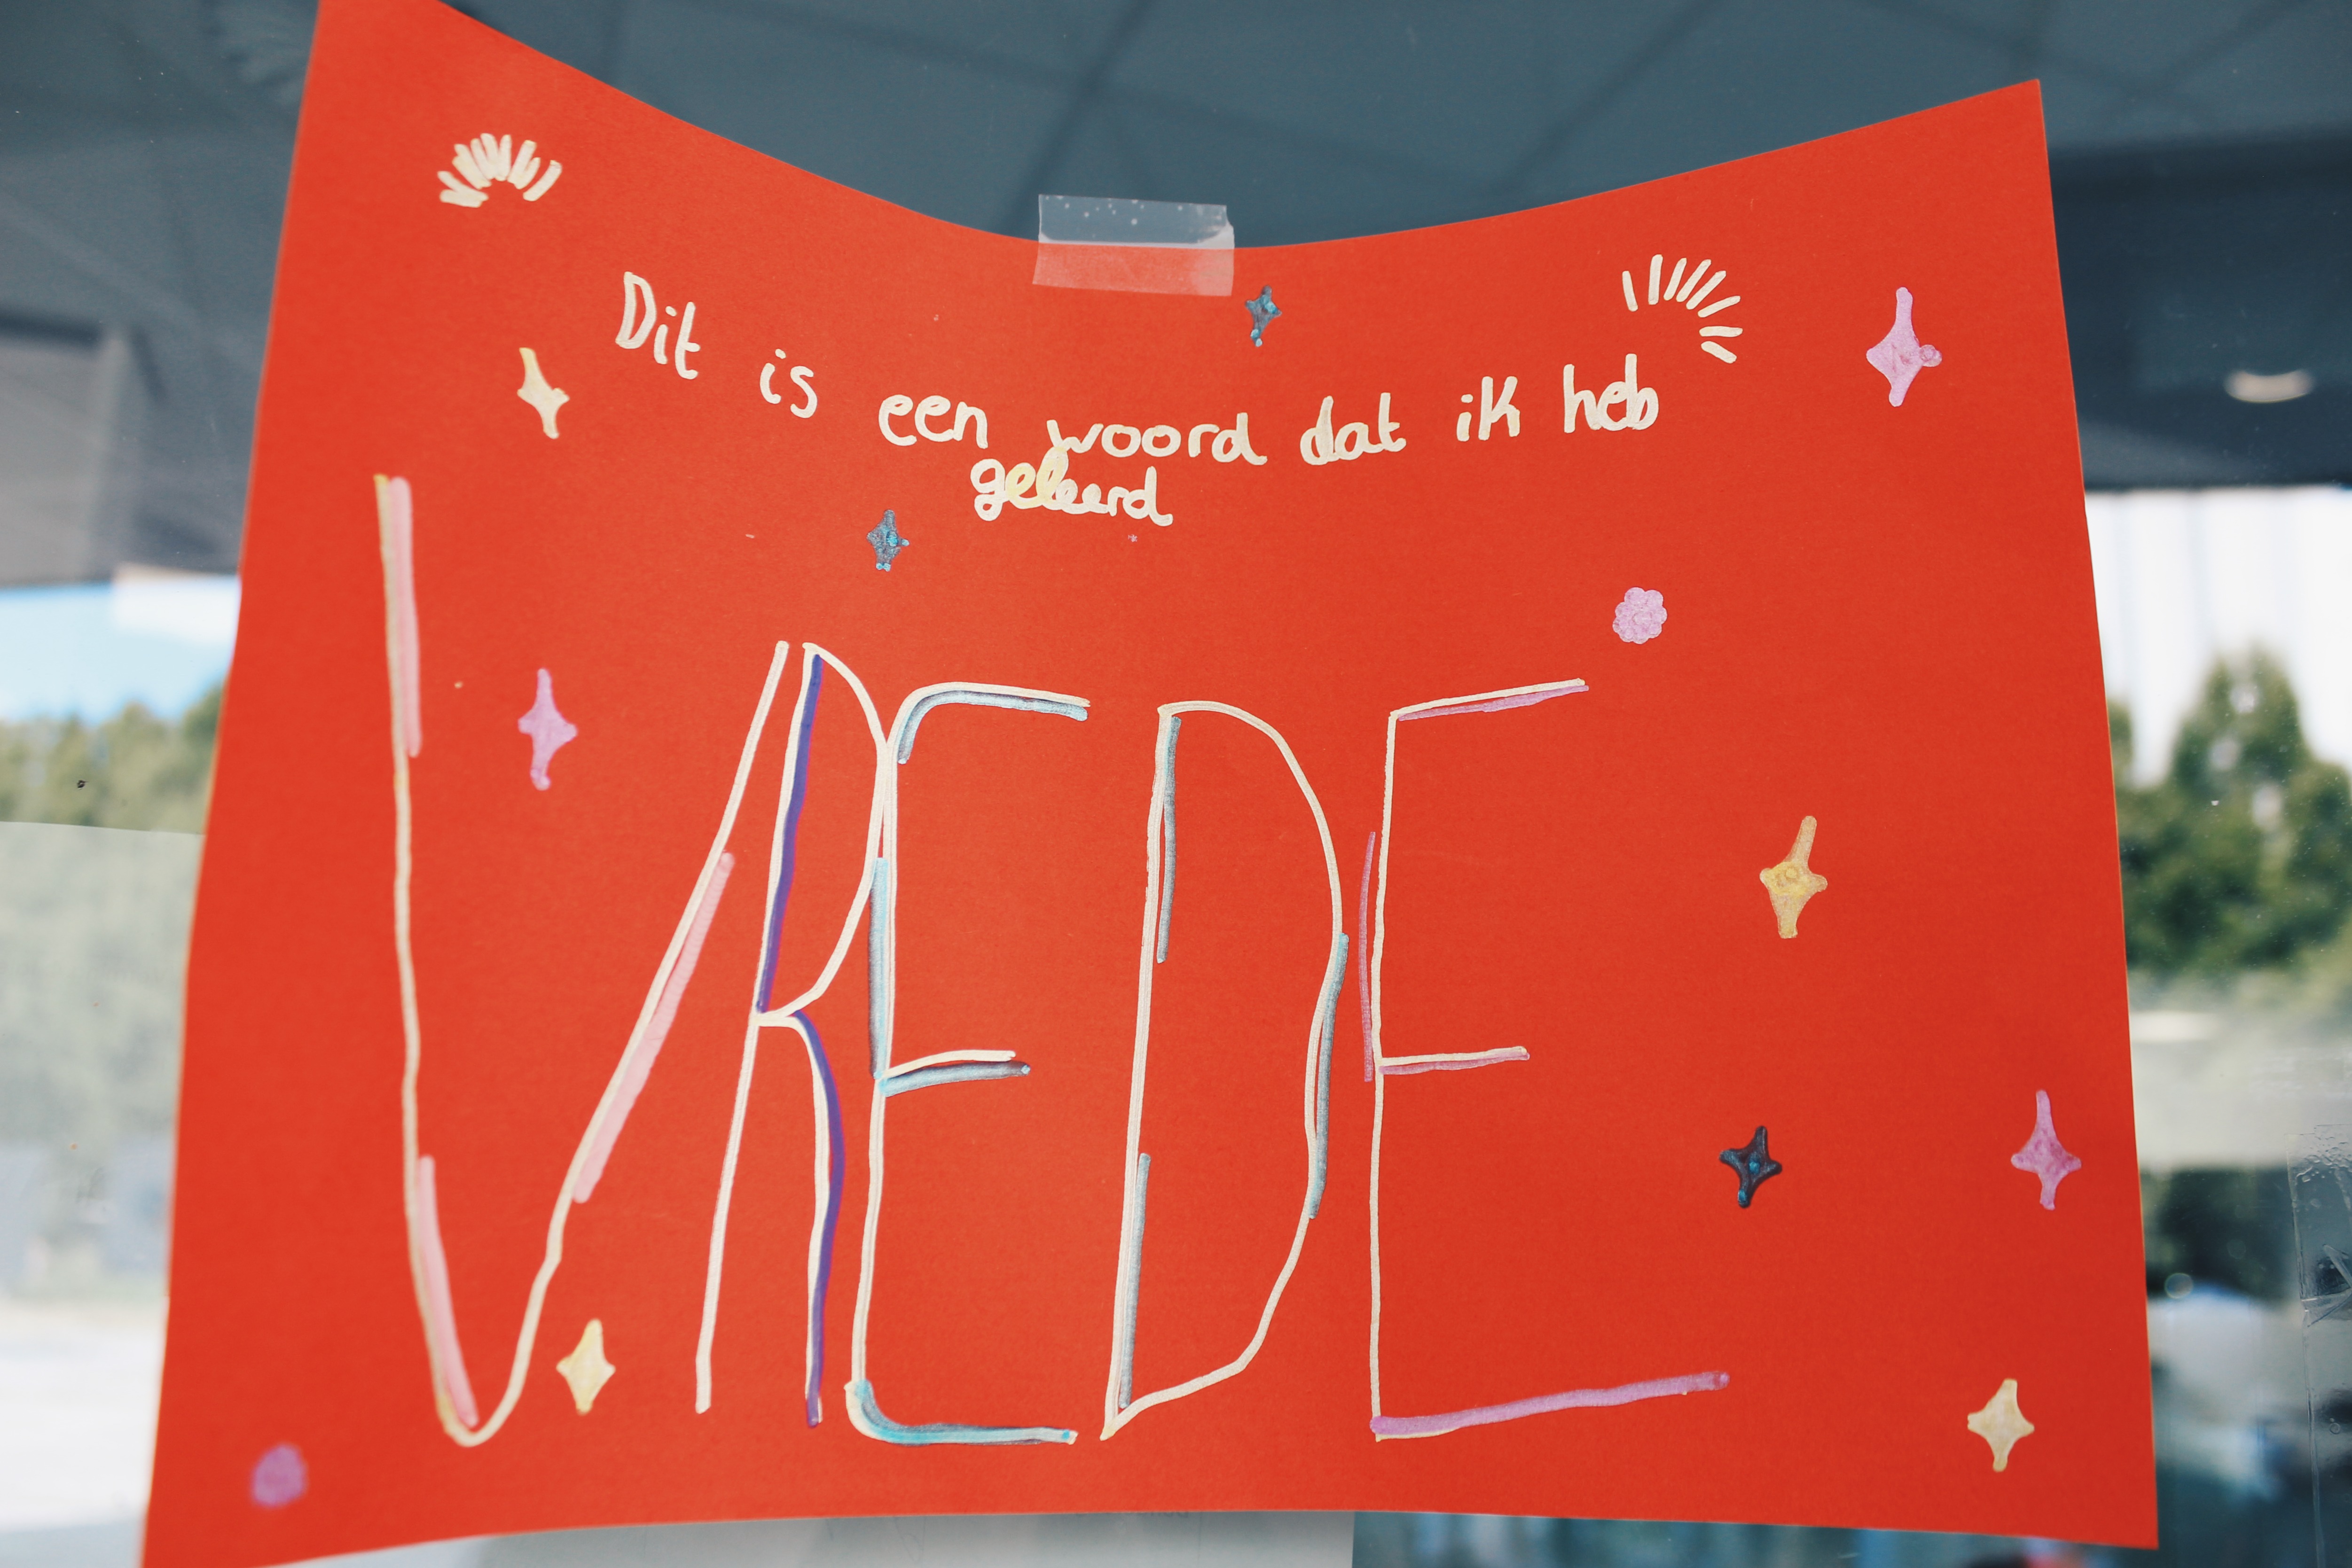 Dit is een woord dat ik heb
geleerd
VREDE